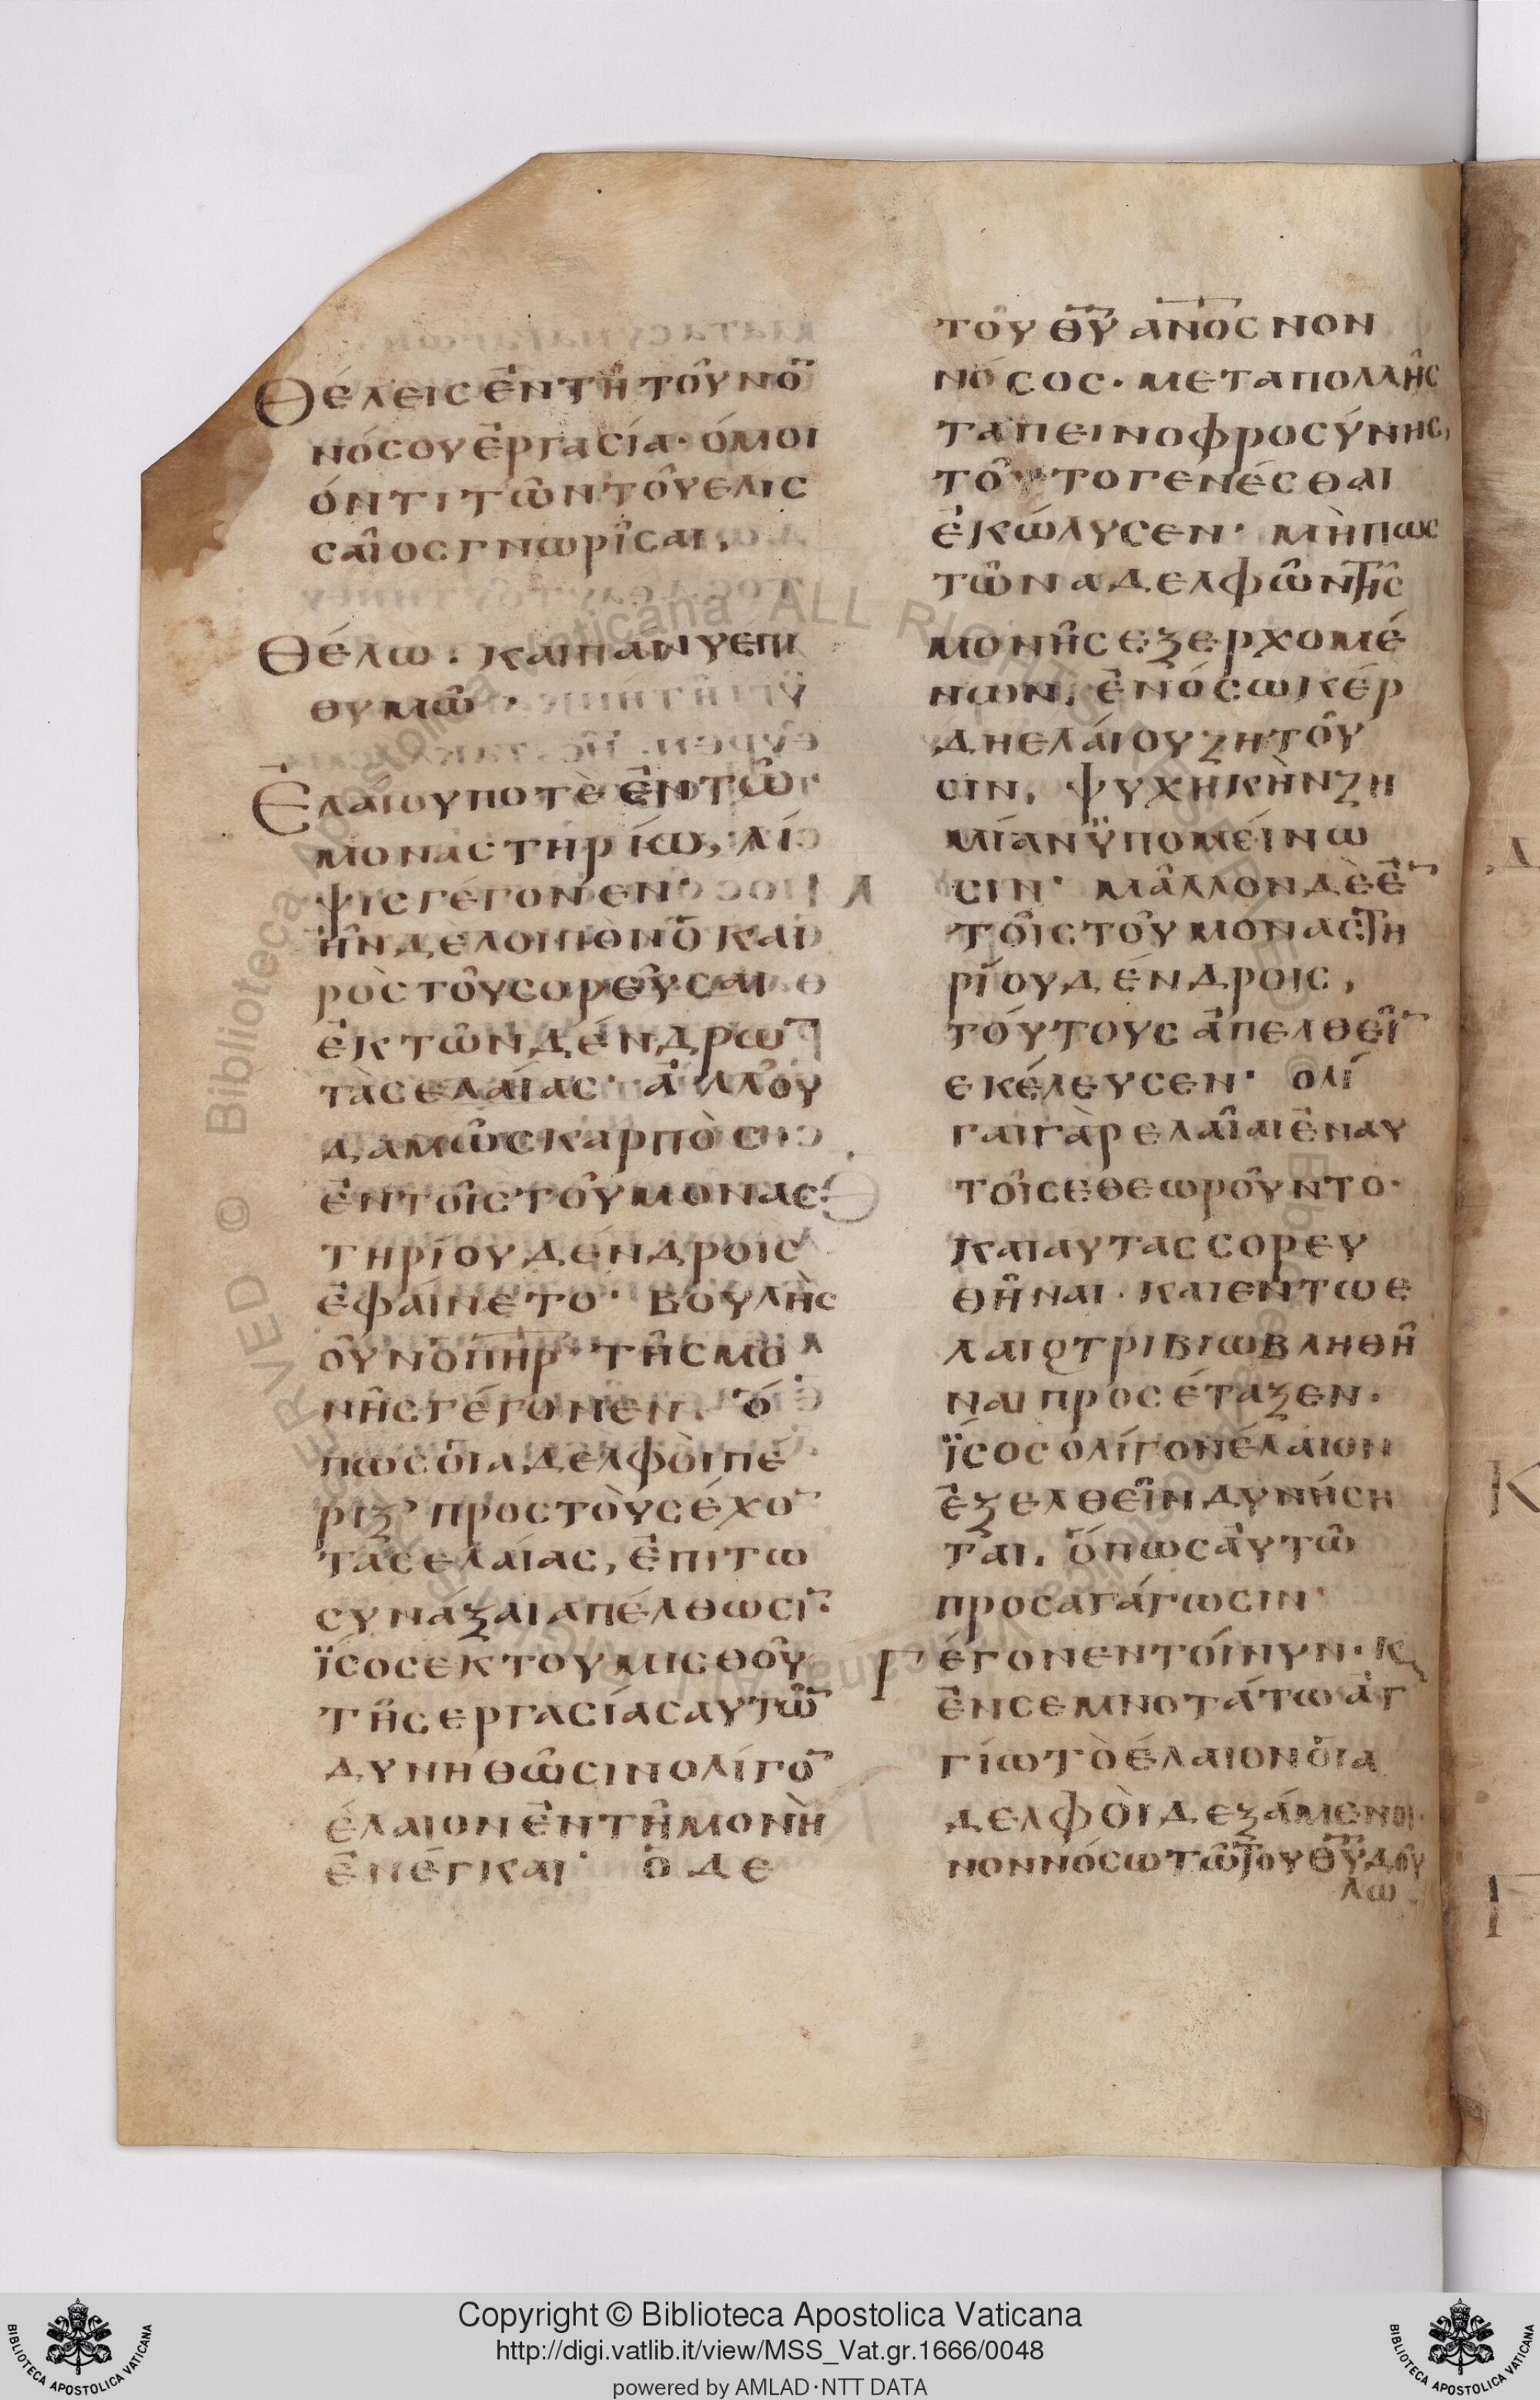 Θέλεις ἐν τῆ τοῦ νο
νόσου ἐργασία· ὁμοι
όν τι τῶν τοῦ ελις
σαῖος γνωρῖσαι,
Θέλω· και πανυ ἐπι
θυμῶ·
Ἐλαιου ποτὲ ἐν τῶ
μοναστηρίω, λί
ψις γέγονεν·
ἦν δε λοιπὸν ὁ και
ρὸς τοῦ σωρεῦσαι
ἐκ τῶν δένδρω̅
τὰς ελαίας· ἀλλ' ου
δαμῶς καρπὸς
ἐν τοῖς τοῦ μονας
τηρίου δένδροις
ἐφαίνετο· βουλὴς
οὖν ὁ πηρ τῆς μο
νῆς γέγονεν· ὅ
πως ὁι αδελφὸι πέ
ριξ προς τοὺς έχο̅
τὰς ελαίας, ἐπι τω
συνάξαι απέλθωσι̅·
ϊσος εκ του μισθοῦ
τῆς εργασίας αυτῶ̅
δυνηθῶσιν ολίγο̅
έλαιον ἐν τῆ μονὴ
ἐνέγκαι· ὁ δε
τοῦ θ̅υ̅ α̅ν̅ο̅ς νον
νόσος· μετα πολλῆς
ταπεινοφροσύνης,
τοῦτο γενέσθαι
ἐκώλυσεν· μὴπως
τῶν αδελφῶν τῆς
μονῆς εξερχομέ
νων, ἐν όσω κέρ
δη ελάιου ζητοῦ
σιν, ψυχηκὴν ζη
μίαν ϋπομείνω
σιν· μᾶλλον δὲ ἐ̅
τοῖς τοῦ μοναστη
ρίου δένδροις,
τόυτους ἀπελθεῖ̅
εκέλευσεν· ολί
γαι γὰρ ελαῖαι ἐν αυ
τοῖς εθεωροῦντο·
και αυτας σορευ
θῆναι· και εν τω ε
λαιοτριβιω βληθῆ
ναι προσέταξεν·
ϊσος ολίγον έλαιον
ἐξελθεῖν δυνήση
ται, ὅπως ἀυτῶ
προσαγάγωσιν·
Γέγονεν τοίνυν· κ
ἐν σεμνοτάτω ἀγ
γίω τὸ έλαιον ὁι α
δελφὸι δεξάμενοι·
νοννόσω τῶ του θ̅υ̅ δού
λω
Copyright © Biblioteca Apostolica Vaticana
http://digi.vatlib.it/view/MSS_Vat.gr.1666/0048
powered by AMLAD·NTT DATA
BIBLIOTECA APOSTOLICA VATICANA
BIBLIOTECA APOSTOLICA VATICANA